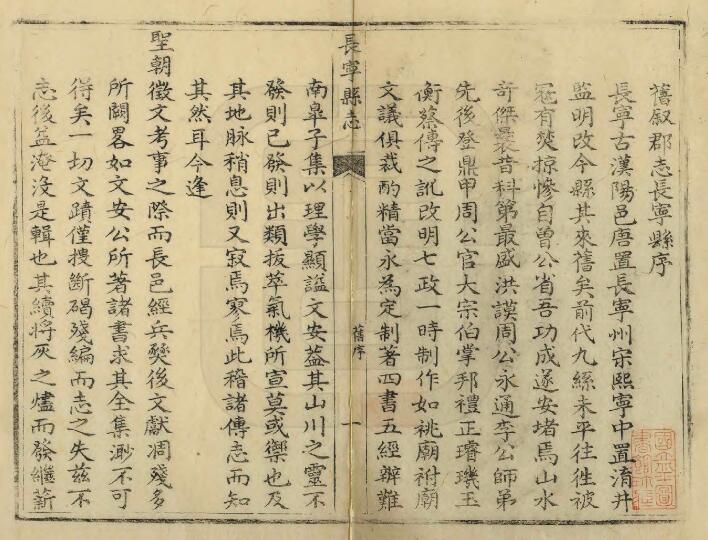 舊叙郡志長寧縣序
長寧古漢陽邑唐置長寧州宋熙寧中置淯井
監明改今縣其來舊矣前代九絲未平往徃被
冦有焚掠慘自曾公省吾功成遂安堵焉山水
奇傑曩昔科第最盛洪謨周公永通李公師弟
先後登鼎甲周公官大宗伯掌邦禮正璿璣玉
衡蔡傳之訛改明七政一時制作如祧廟祔廟
文議俱裁酌精當永為定制著四書五經辨難
長寧縣志
舊序
一
南臯子集以理學顯諡文安蓋其山川之靈不
發則已發則出類拔萃氣機所宣莫或禦也及
其地脉稍息則又寂焉寥焉此稽諸傳志而知
其然耳今逢
聖朝徵文考事之際而長邑經兵燹後文獻凋殘多
所闕畧如文安公所著諸書求其全集渺不可
得矣一切文蹟僅搜斷碣殘編而志之失兹不
志後益淹没是輯也其續將灰之燼而發繼薪